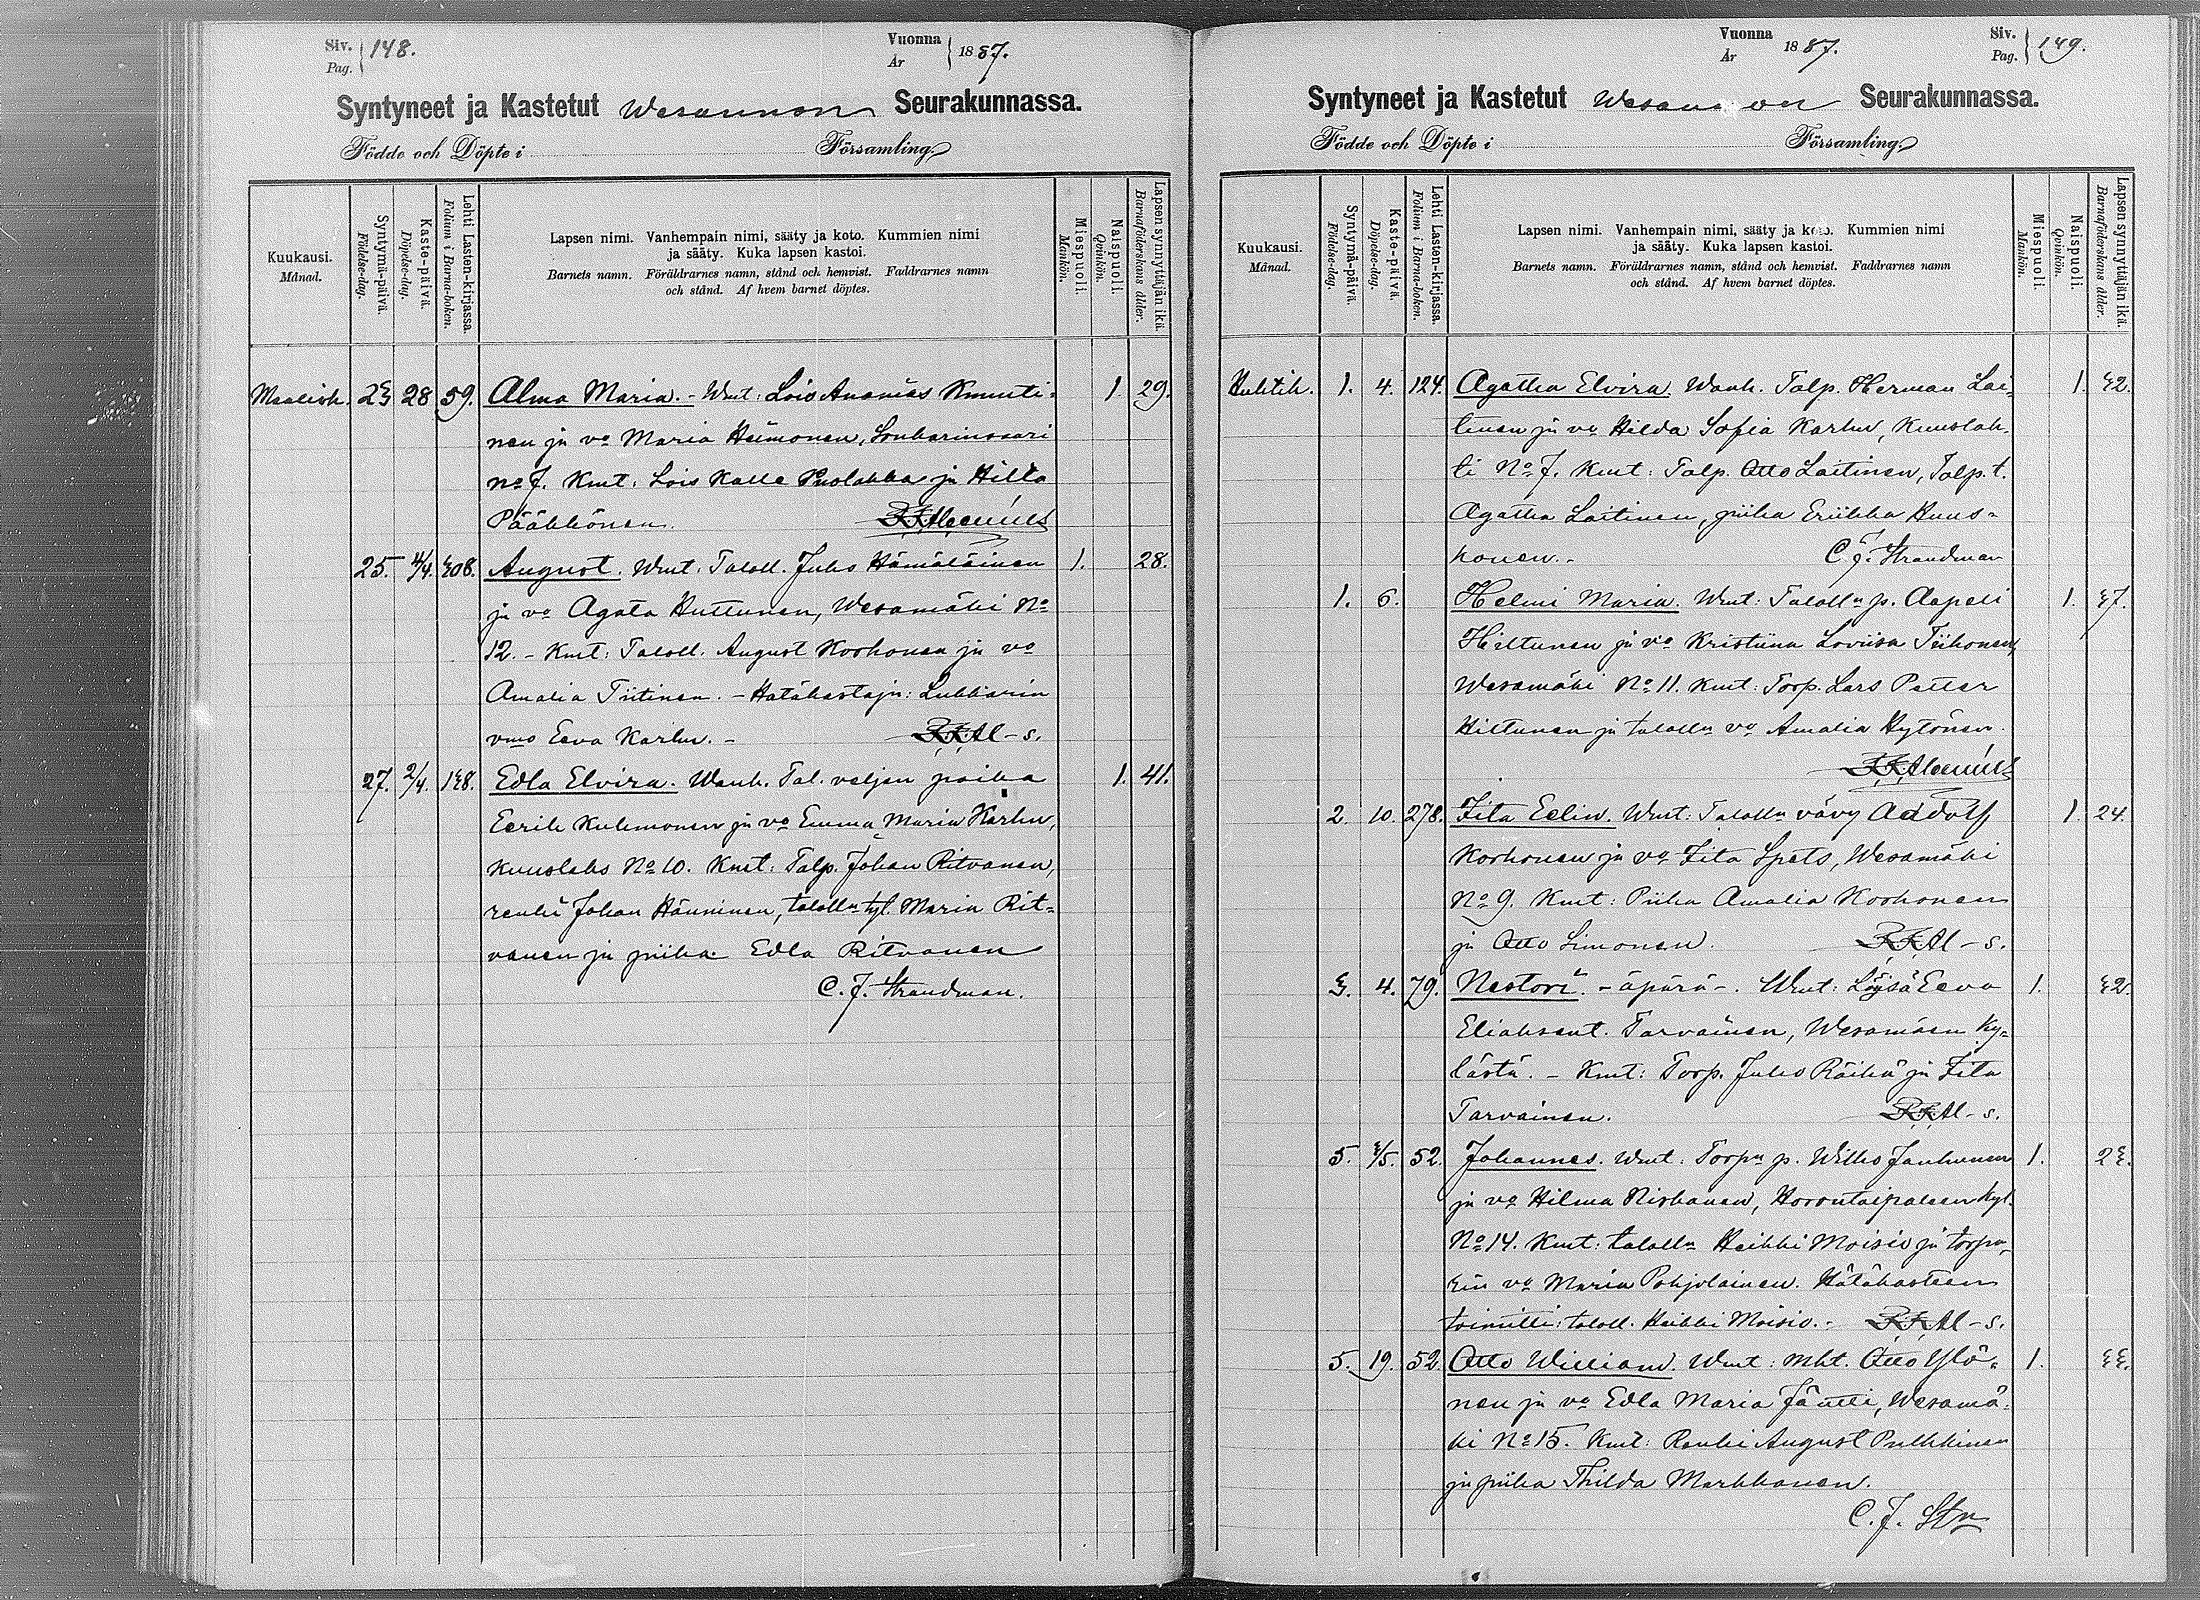 Siv. Pag. 148.
Vuonna År 1887.
Syntyneet ja Kastetut Wesannon Seurakunnassa.
Födde och Döpte i Församling
Kuukausi. Månad.
Syntymä-päivä. Födelse-dag.
Kaste-päivä. Döpelse-dag.
Lehti Lasten-kirjassa. Folium i Barna-boken.
Lapsen nimi. Vanhempain nimi, sääty ja koto. Kummien nimi
ja sääty. Kuka lapsen kastoi.
Barnets namn. Föräldrarnes namn, stånd och hemvist. Faddrarnes namn
och stånd. Af hvem barnet döptes.
Miespuoli. Mankön.
Naispuoli. Qvinkön.
Lapsen synnyttäjän ikä. Barnaföderskans ålder.
Maalisk. 23 28 59. Alma Maria. - Wmt: Lois Ananias Knuuti- 1. 29.
nen ja vo Maria Heimonen, Soukarinsaari
No 7. Kmt: Lois Kalle Puolakka ja Hilta
Pääkkönen.
25. 4/4. 308. August. Wmt: Taloll. Juho Hämäläinen 1. 28.
ja vo Agata Huttunen, Wesamäki No
12. - Kmt: Taloll. August Korhonen ja vo
Amalia Tiitinen. - Hätäkastaja: Lukkarin
vmo Eeva Karhu. -
27. 2/4. 138. Edla Elvira. Wanh. Tal. veljen poika 1. 41.
Eerik Kuhmonen ja vo Emma Maria Karhu,
Kuuslaks No 10. Kmt: Talp. Johan Ritvanen,
renki Johan Hänninen, talolln tyt. Maria Rit-
vanen ja piika Edla Ritvanen
C. J. Strandman.
Vuonna År 1887.
Siv. Pag. 149.
Syntyneet ja Kastetut Wesannon Seurakunnassa.
Födde och Döpte i Församling
Kuukausi. Månad.
Syntymä-päivä. Födelse-dag.
Kaste-päivä. Döpelse-dag.
Lehti Lasten-kirjassa. Folium i Barna-boken.
Lapsen nimi. Vanhempain nimi, sääty ja koto. Kummien nimi
ja sääty. Kuka lapsen kastoi.
Barnets namn. Föräldrarnes namn, stånd och hemvist. Faddrarnes namn
och stånd. Af hvem barnet döptes.
Miespuoli. Mankön.
Naispuoli. Qvinkön.
Lapsen synnyttäjän ikä. Barnaföderskans ålder.
Huhtik. 1. 4. 124. Agatha Elvira. Wanh. Talp. Herman Lai- 1. 32.
tinen ja vo Hilda Sofia Karhu, Kuuslah-
ti No 7. Kmt: Talp. Otto Laitinen, Talp. t.
Agatha Laitinen, piika Eriikka Huus-
konen. - C. J. Strandman
1. 6. Helmi Maria. Wmt: Talolln p. Aapeli 1. 37.
Hiltunen ja vo Kristiina Loviisa Tiihonen,
Wesamäki No 11. Kmt: Torp. Lars Petter
Hiltunen ja talolln vo Amalia Hytönen.
2. 10. 278. Fita Eelin. Wmt: Talolln vävy Aadolf 1. 24.
Korhonen ja vo Fita Spets, Wesamäki
No 9. Kmt: Piika Amalia Korhonen
ja Otto Simonen.
3. 4. 79. Nestori. - äpärä -. Wmt: Löysä Eeva 1. 32.
Eliaksent. Tarvainen, Wesamäen ky-
lästä. - Kmt: Torp. Juho Räihä ja Fita
Tarvainen.
5. 3/5. 52. Johannes. Wmt: Torpn p. Wilho Janhunen 1. 23.
ja vo Hilma Niskanen, Horontaipaleen kyl.
No 14. Kmt: talolln Heikki Moisio ja torpa-
rin vo Maria Pohjolainen. Hätäkasteen
toimitti: taloll. Heikki Moisio. -
5. 19. 52. Otto William. Wmt: Mkt. Otto Ylö- 1. 33.
nen ja vo Edla Maria Jäntti, Wesamä-
ki No 15. Kmt: Renki August Pulkkinen
ja piika Thilda Markkanen.
C. J. Stn